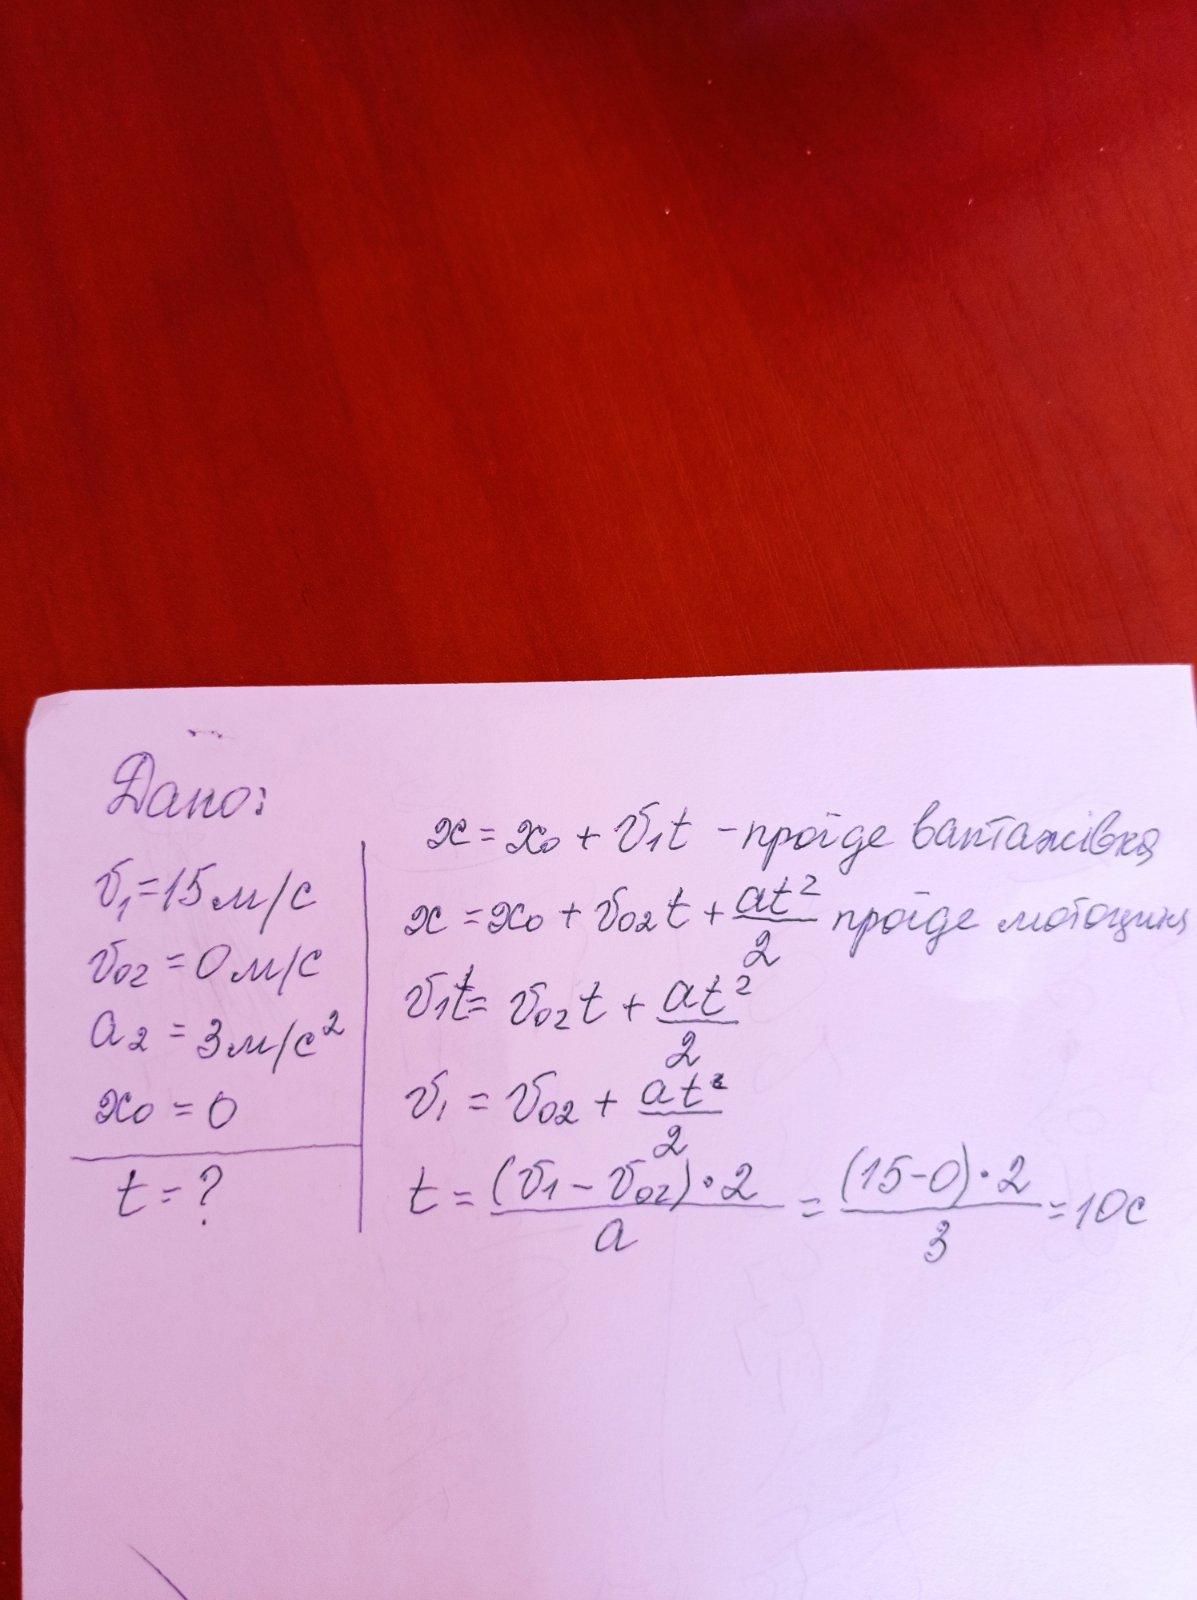 Дано:
v₁=15м/с
v₀₂=0м/с
a₂=3м/с²
x₀=0
t=?
x=x₀+v₁t -проїде вантажівка
x=x₀+v₀₂t+at²/2 проїде мотоцикл
v₁t=v₀₂t+at²/2
v₁=v₀₂+at²/2
t=(v₁-v₀₂)·2/a=(15-0)·2/3=10с